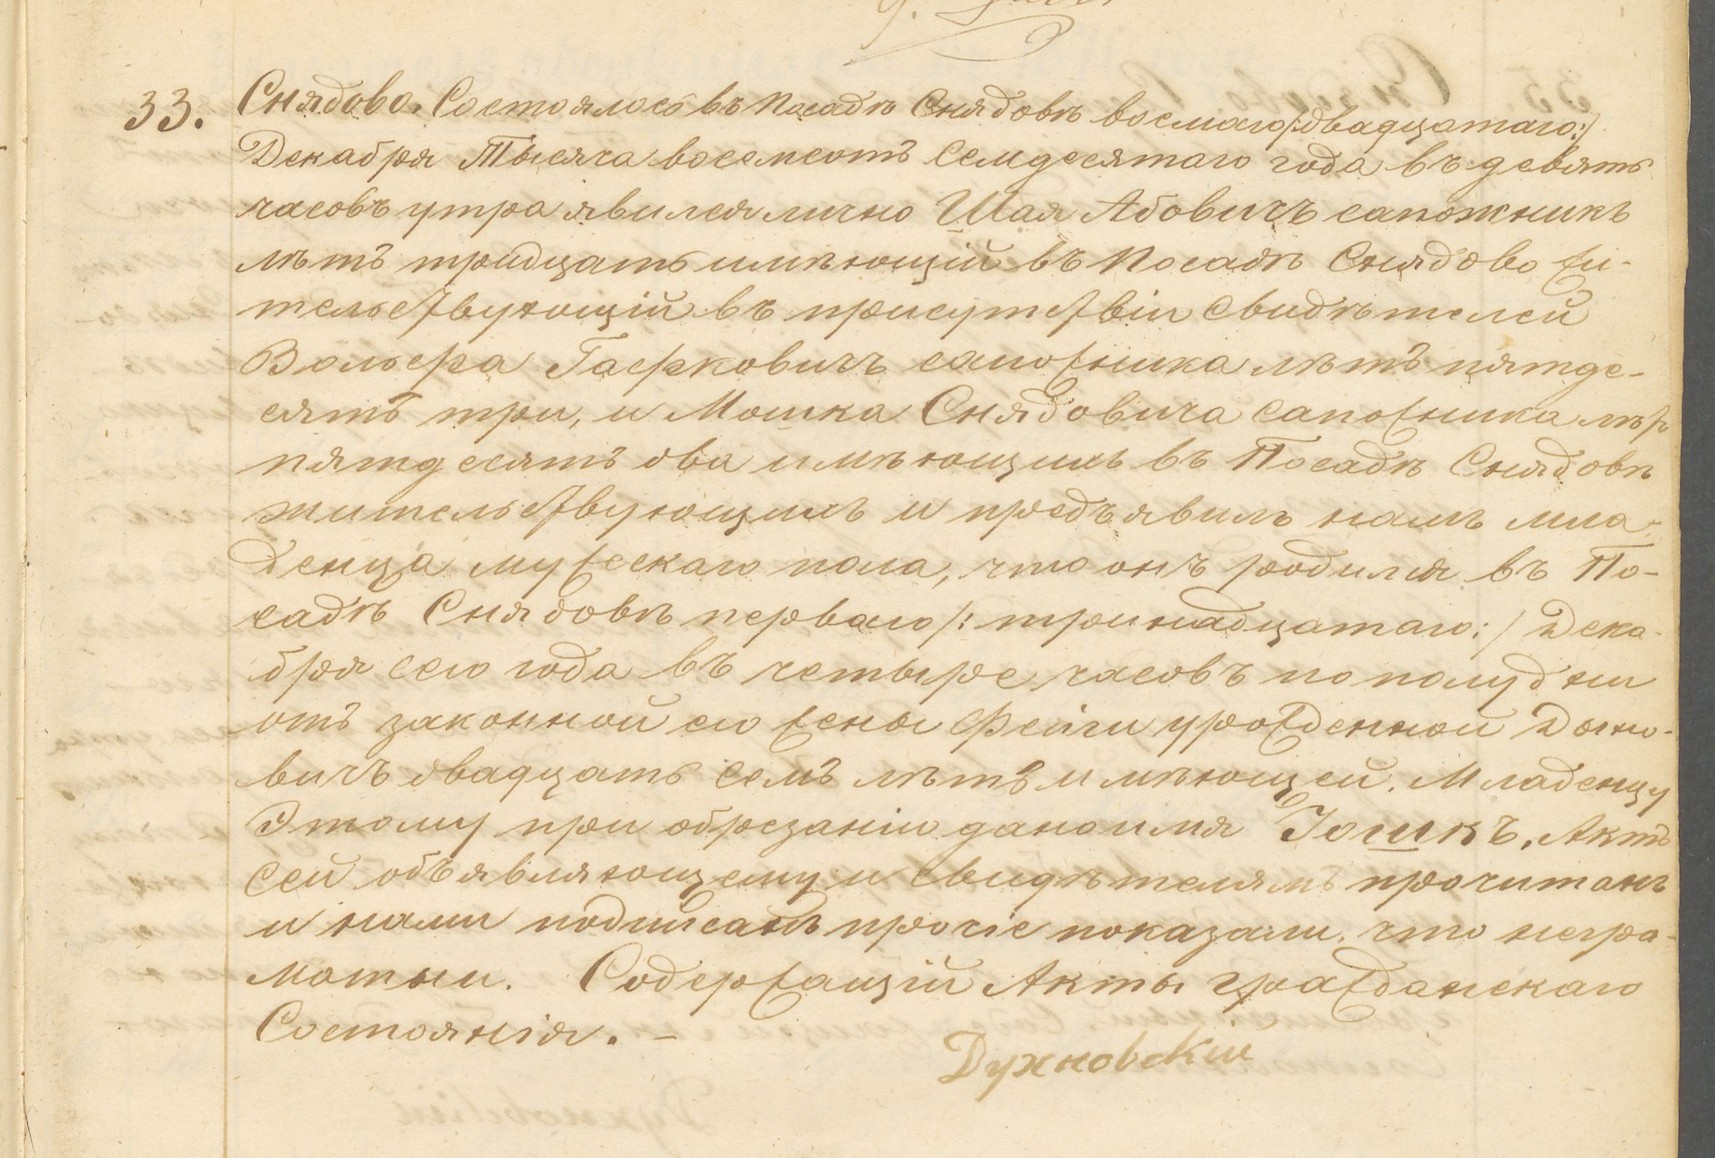 33. Снядово. Состоялось въ Посадѣ Снядовѣ восмаго /:двадцатаго:/
Декабря Тысяча восемсотъ семдесятаго года въ девять
часовъ утра явился лично Шая Абовичъ сапожникъ
лѣтъ тридцать имѣющій въ Посадѣ Снядово жи-
тельствующій въ присутствіи свидѣтелей
сапожника лѣтъ пятде-
сятъ три, и Мошка Снядовича сапожника лѣтъ
пятдесятъ два имѣющихъ въ Посадѣ Снядовѣ
жительствующихъ и предъявилъ намъ мла-
денца мужескаго пола, что онъ родился въ По-
садѣ Снядовѣ перваго /:тринадцатаго:/ Дека-
бря сего года въ четыре часовъ по полудни
отъ законной его жены Фейги урожденной
двадцать семъ лѣтъ имѣющей. Младенцу
Этому при обрезаніи дано имя Іошкъ. Актъ
сей объявляющему и свидѣтелямъ прочитанъ
и нами подписанъ прочіе показали, что негра-
мотни. Содержащій Акты гражданскаго
Состоянія. –
Духновскій